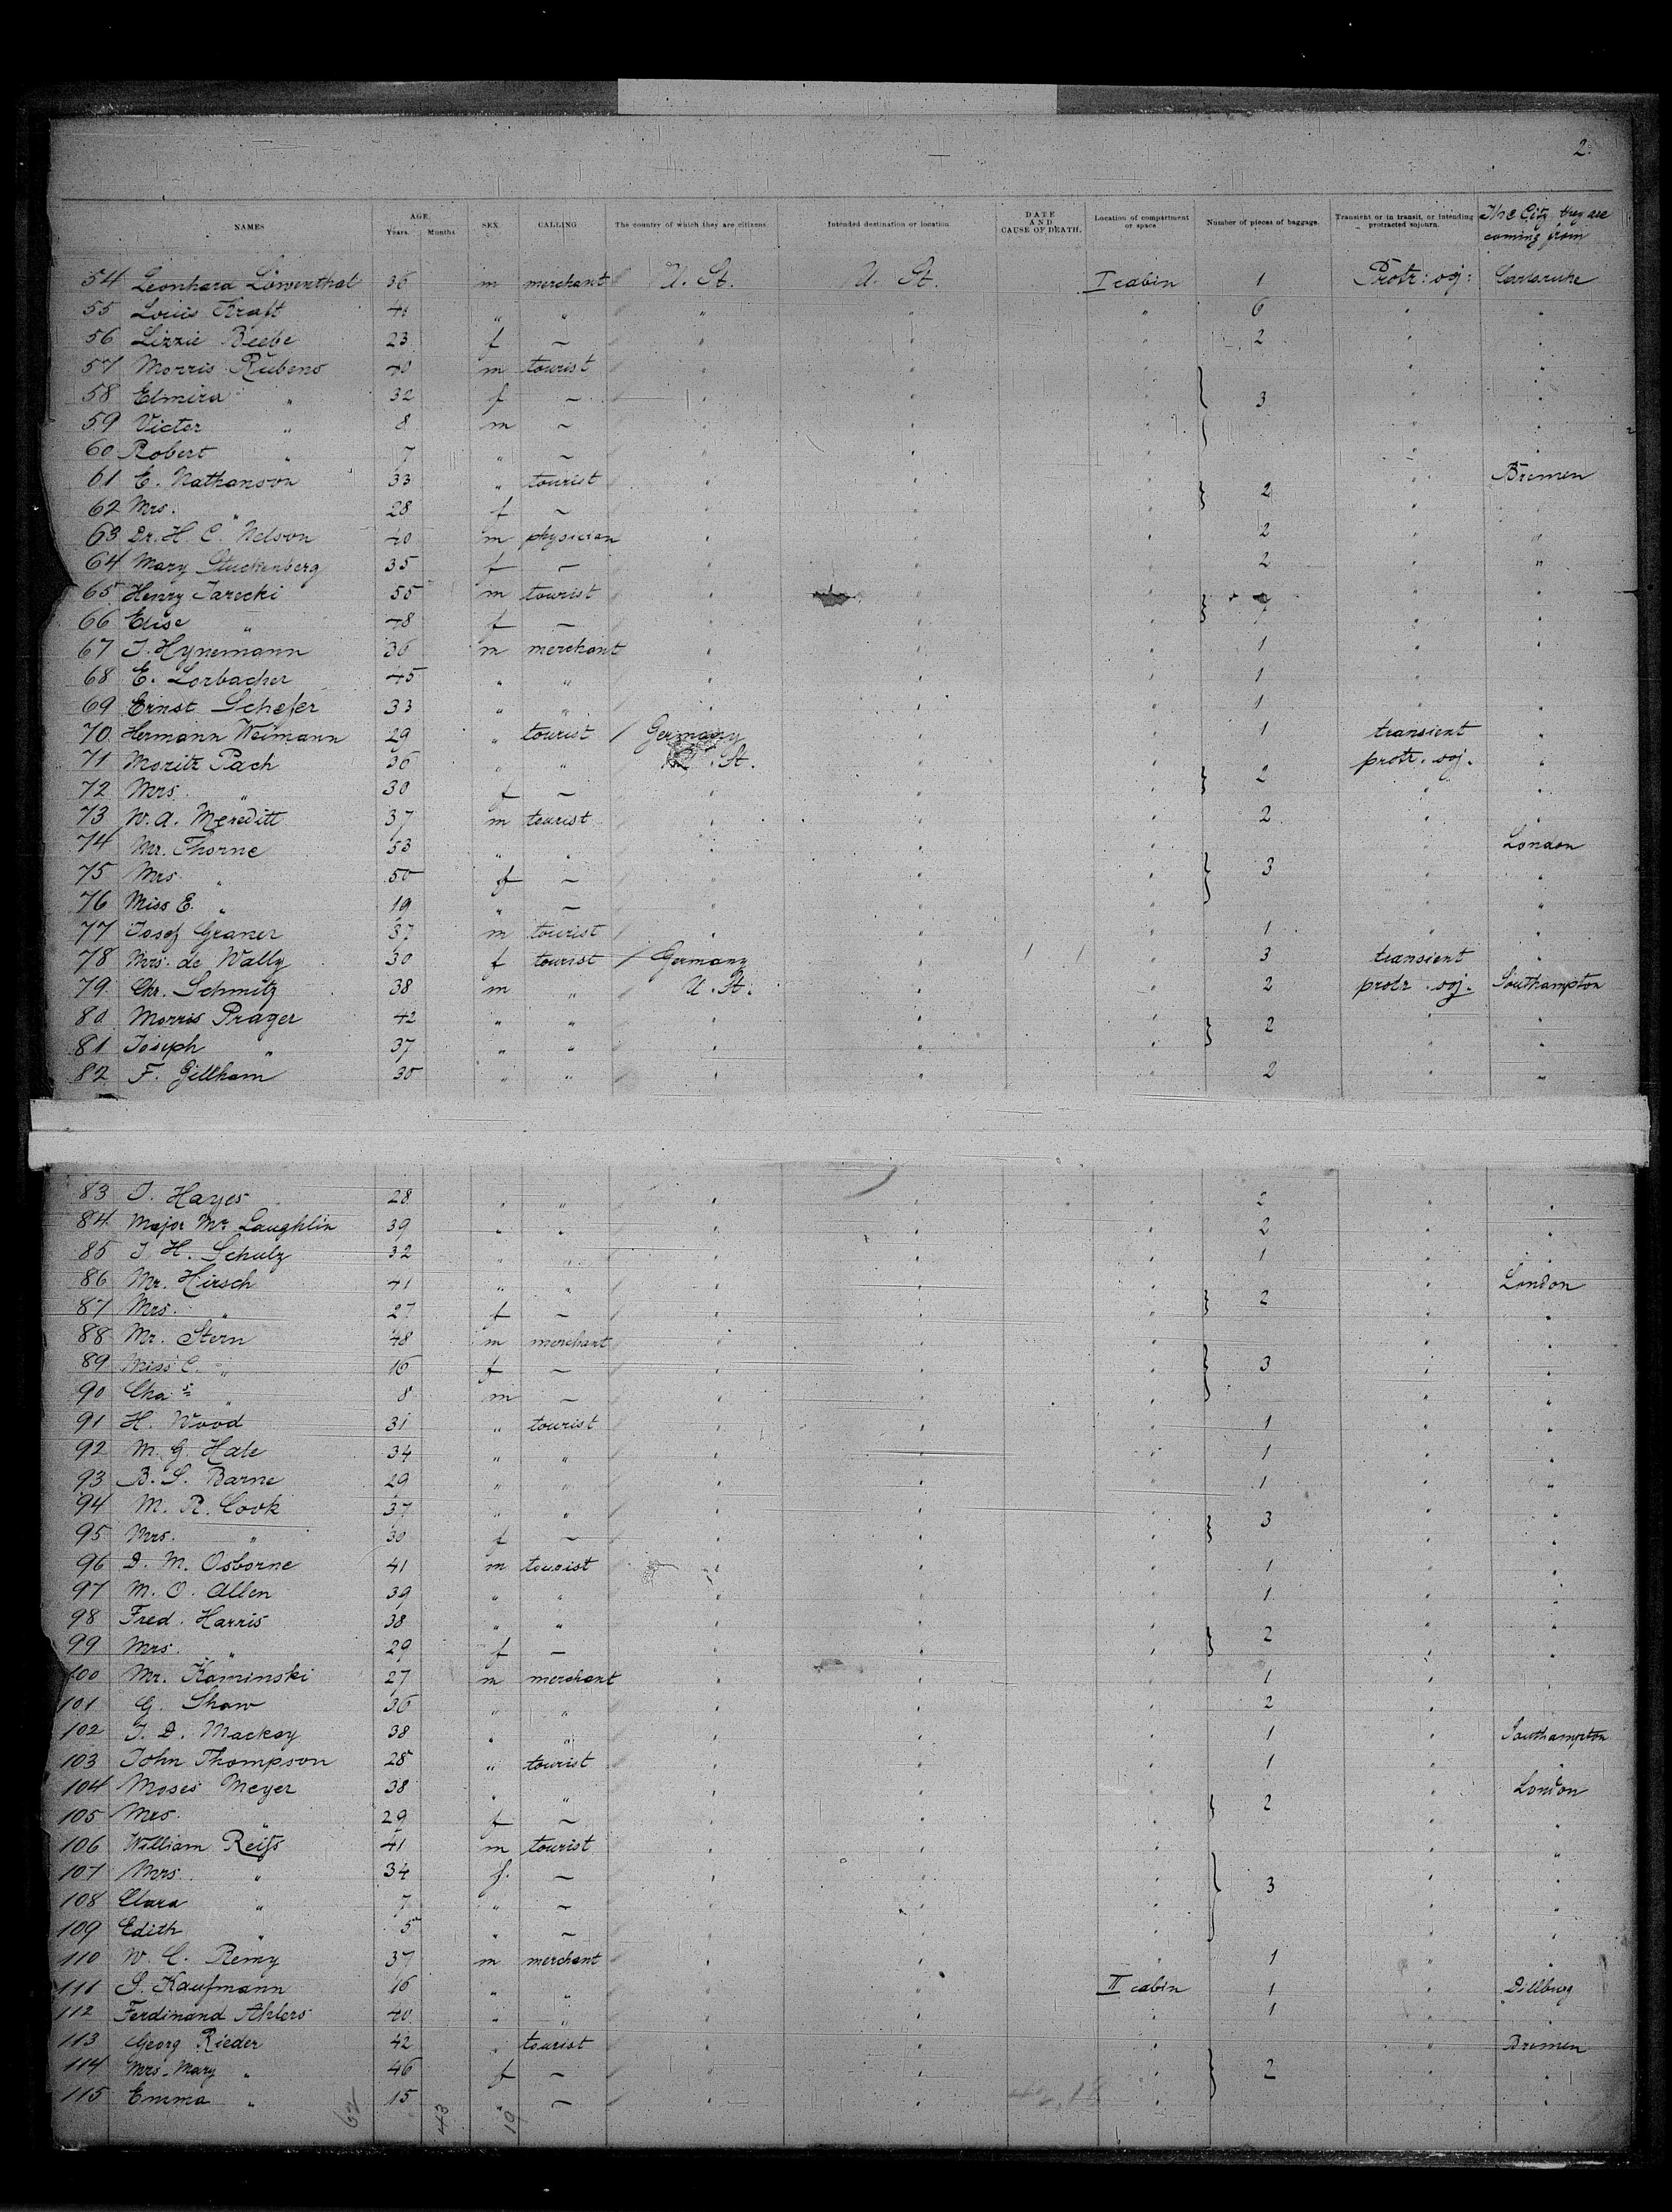 2.
NAMES AGE. Years. Months SEX. CALLING The country of which they are citizens. Intended destination or location. DATE AND CAUSE OF DEATH. Location of compartment or space. Number of pieces of baggage. Transient or in transit, or intending protracted sojourn. The City they are coming from
54 Leonhard Löwenthal 36 m merchant U. St. U. St. I cabin 1 Protr: soj: Carlsruhe
55 Louis Kraft 41 " " " " " 6 " "
56 Lizzie Beebe 23 f – " " " 2 " "
57 Morris Rubens 40 m tourist " " " " "
58 Elmira " 32 f – " " " 3 " "
59 Victor " 8 m – " " " " "
60 Robert " 7 " – " " " " "
61 E. Nathanson 33 " tourist " " " " Bremen
62 Mrs. " 28 f – " " " 2 " "
63 Dr. H. C. Nelson 40 m physician " " " 2 " "
64 Mary Stuckenberg 35 f – " " " 2 " "
65 Henry Jarecki 55 m tourist " " " " "
66 Elise " 48 f – " " " 7 " "
67 J. Hynemann 36 m merchant " " " 1 " "
68 E. Lorbacher 45 " " " " " 1 " "
69 Ernst Schefer 33 " " " " " 1 " "
70 Hermann Weimann 29 " tourist / Germany " " 1 transient "
71 Moritz Pach 36 " " U. St. " " protr. soj. "
72 Mrs. " 30 f – " " " 2 " "
73 W. A. Mereditt 37 m tourist " " " 2 " "
74 Mr. Thorne 53 " " " " " " London
75 Mrs " 50 f – " " " 3 " "
76 Miss E. " 19 " – " " " " "
77 Josef Graner 37 m tourist " " " 1 " "
78 Mrs. de Wally 30 f tourist / Germany " " 3 transient "
79 Chr. Schmitz 38 m " U. St. " " 2 protr. soj. Southampton
80 Morris Prager 42 " " " " " 2 " "
81 Joseph " 37 " " " " " " "
82 F. Gillham 35 " " " " " 2 " "
83 J. Hayes 28 " " " " " 2 " "
84 Major Mc Laughlin 39 " " " " " 2 " "
85 J. H. Schulz 32 " " " " " 1 " "
86 Mr. Hirsch 41 " " " " " " London
87 Mrs. " 27 f – " " " 2 " "
88 Mr. Stern 48 m merchant " " " " "
89 Miss C. " 16 f – " " " 3 " "
90 Chas " 8 m – " " " " "
91 H. Wood 31 " tourist " " " 1 " "
92 M. G. Hale 34 " " " " " 1 " "
93 B. S. Barne 29 " " " " " 1 " "
94 M. R. Cook 37 " " " " " 3 " "
95 Mrs. " 30 f – " " " " "
96 D. M. Osborne 41 m tourist " " " 1 " "
97 M. O. Allen 39 " " " " " 1 " "
98 Fred. Harris 38 " " " " " 2 " "
99 Mrs. " 29 f – " " " " "
100 Mr. Kaminski 27 m merchant " " " 1 " "
101 G. Shaw 36 " " " " " 2 " "
102 J. D. Mackay 38 " " " " " 1 " Southampton
103 John Thompson 28 " tourist " " " 1 " "
104 Moses Meyer 38 " " " " " 2 " London
105 Mrs. " 29 f – " " " " "
106 William Reifs 41 m tourist " " " " "
107 Mrs. " 34 f. – " " " 3 " "
108 Clara " 7 " – " " " " "
109 Edith " 5 " – " " " " "
110 W. C. Remy 37 m merchant " " " 1 " "
111 S. Kaufmann 16 " " " " II cabin 1 " Dillburg
112 Ferdinand Ahlers 40 " " " " " 1 " "
113 Georg Rieder 42 " tourist " " " " Bremen
114 Mrs. Mary " 46 f – " " " 2 " "
115 Emma " 15 " – " " " " "
62 43 19